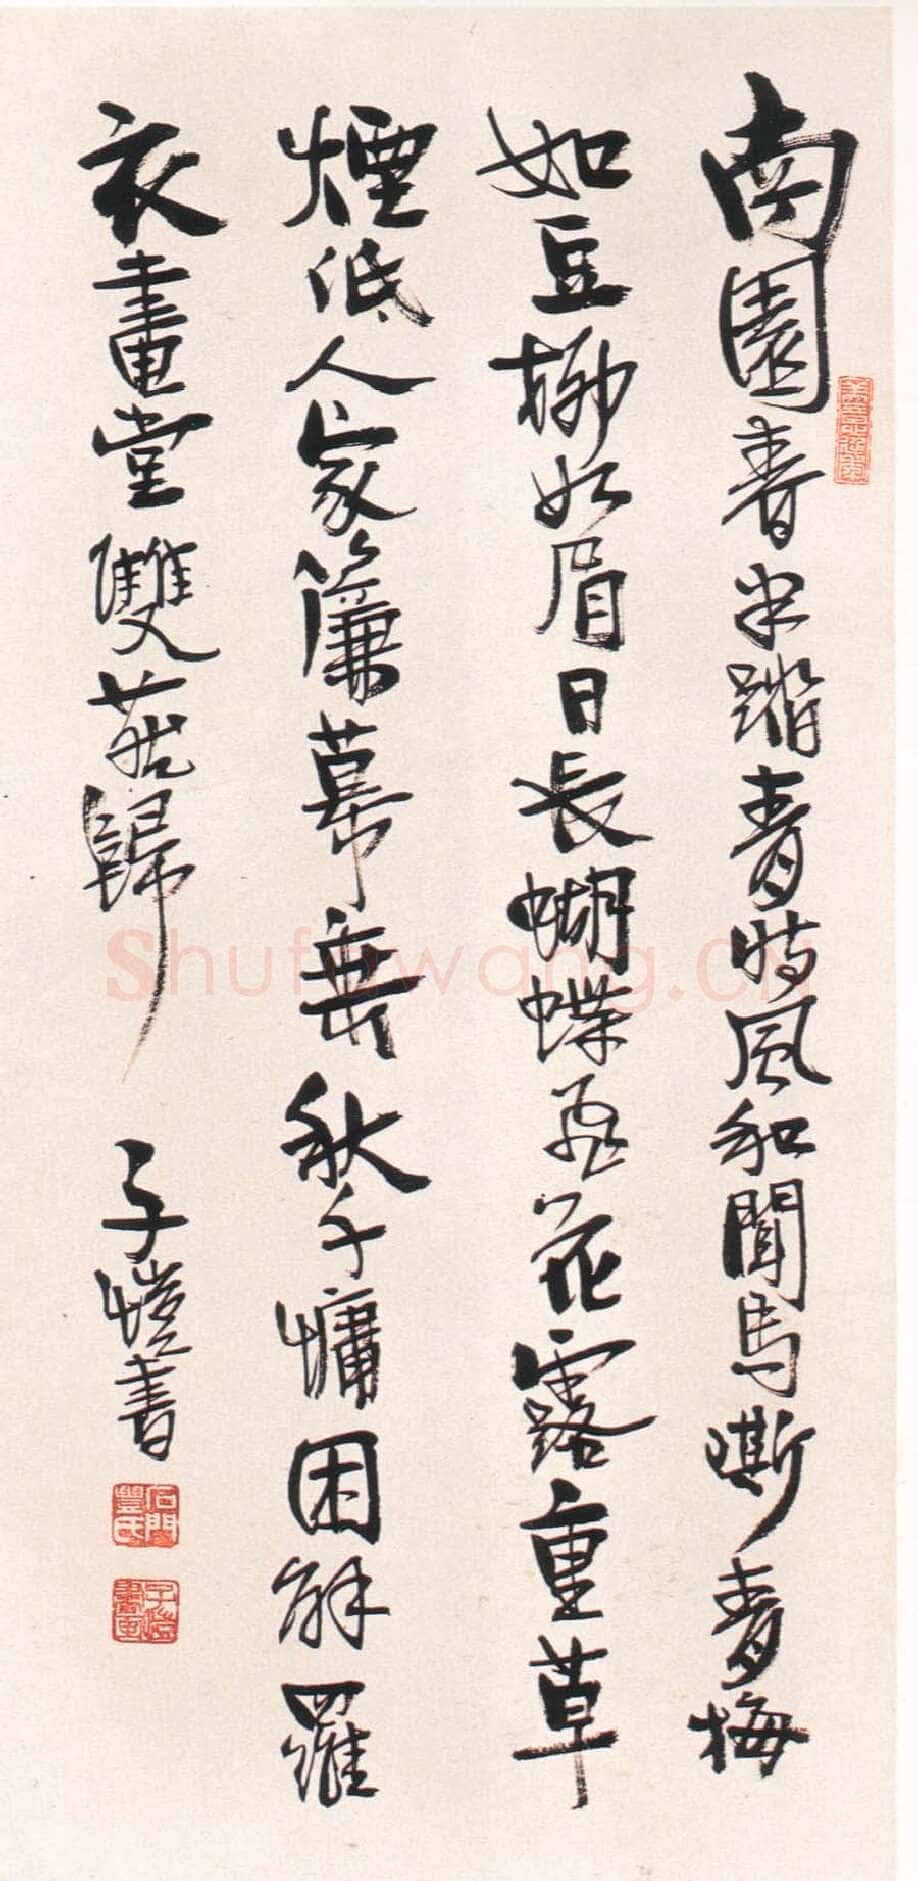 南園春半踏青時風和聞馬嘶青梅
如豆柳如眉日長蝴蝶飛花露重草
煙低人家簾幕垂秋千慵困解羅
衣畫堂雙燕歸
子愷書
石門豐氏
Shufawang.cn